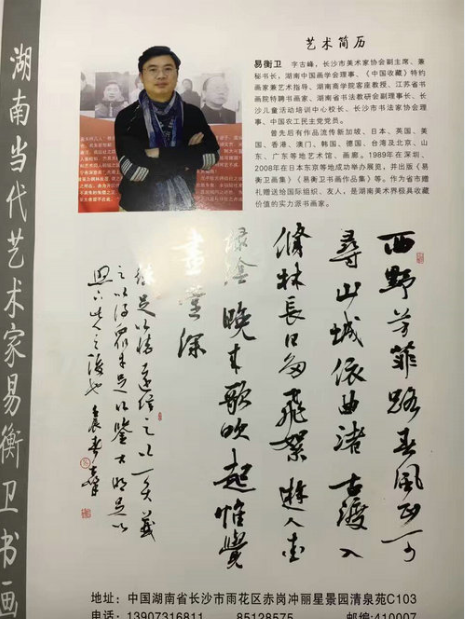 湖南当代艺术家易衡卫书画
艺术简历
易衡卫 字古峰，长沙市美术家协会副主席、兼
秘书长，湖南中国画学会理事、《中国收藏》特约
画家兼艺术指导、湖南商学院客座教授、江苏省书
画院特聘书画家、湖南省书法教研会副理事长、长
沙儿童活动培训中心校长、长沙市书法家协会理
事、中国农工民主党党员。
曾先后有作品流传新加坡、日本、英国、美
国、香港、澳门、韩国、德国、台湾及北京、山
东、广东等地艺术馆、画廊。1989年在深圳、
2008年在日本东京等地成功举办展览，并出版《易
衡卫画集》《易衡卫书画作品集》等。作为省市赠
礼赠送给国际组织、友人，是湖南美术界极具收藏
价值的实力派书画家。
西野芳菲路春风正可
寻山城依曲渚古渡入
修林长日多飞絮游人爱
绿阴晚来歌吹起惟觉
画堂深
德足以怀远信足以一义
足以得众才足以鉴古明足以
地址：中国湖南省长沙市雨花区赤岗冲丽星景园清泉苑C103
电话：13907316811 85128575 邮编:410007